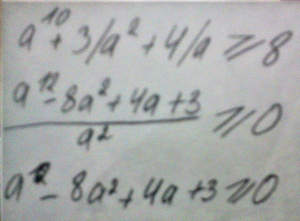 a¹⁰ + 3/a² + 4/a ⩾ 8
a¹² - 8a² + 4a + 3
a² ⩾ 0
a¹² - 8a² + 4a + 3 ⩾ 0